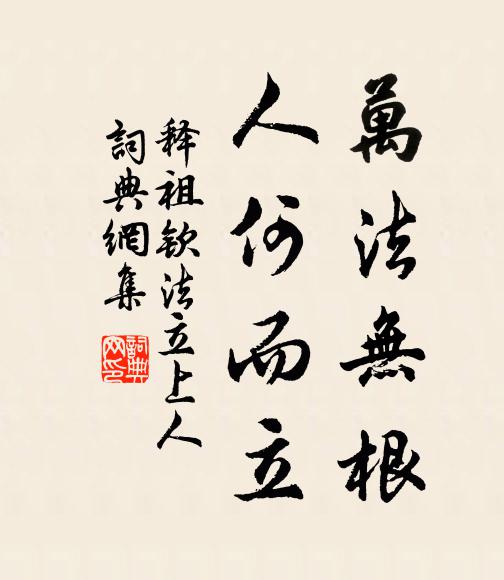 萬法無根
人何而立
释祖钦法立上人
詞典網集
詞典網印